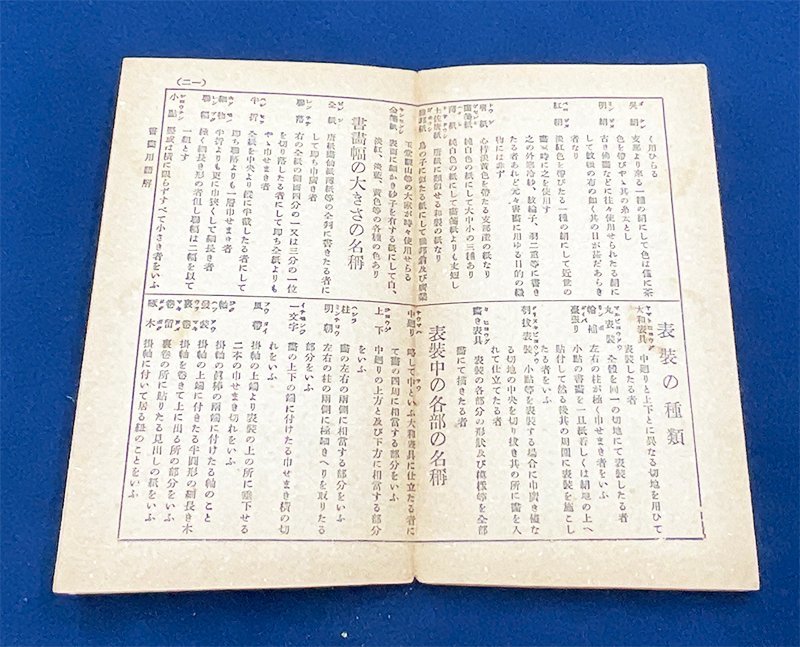 く用ひらる
呉絹 支那より來る一種の絹にして色は僅に茶
色を帶びやゝ其の糸太とし
明絹 古き佛畵などに往々使用せられたる絹に
して紋織の布の如く其の目が甚だあらき
者なり
紅絹 淡紅色を帶びたる一種の絹にして近世の
畵家時に之を使用す
之の外寒冷紗、紋綸子、羽二重等に書き
たる者あれど元々書畵に用ゆる目的の織
物には非ず
唐紙 心持淡黄色を帶たる支那產の紙なり
畵箋紙 純白色の紙にして大中小の三種あり
蒲紙 純白色の紙にして畵箋紙よりも丈短し
土佐唐紙 唐紙に類似せる和製の紙なり
鳥の子に似たる紙にして
玉堂觀山等の大家が時々使用せらる
金箋紙 表面に細かき金子を有する紙にして白、
淡紅、淡藍、黄色等の各種の色あり
書畵幅の大きさの名稱
全紙 唐紙畵仙紙蒲紙等の全判に書きたる者に
して即ち巾廣き者
聯落 右の全紙の縱四分の一又は三分の一位
を切り落したる者にして即ち全紙よりも
やゝ巾せまき者
半折 全紙を中央より縱に半截したる者にして
即ち聯落よりも一層巾せまき者
細物 半折よりも更に巾狹くして細長き者
聯幅 極く細長き形の者但し聯幅は二幅を以て
一組とす
小點 竪或は橫に限らずすべて小さき者をいふ
書畵用語解
(一二)
表裝の種類
大和表具 中廻りと上下とに異なる切地を用ひて
表裝したる者
丸表裝 全體を同一の切地にて表裝したる者
輪補 左右の柱が極く巾せまき者をいふ
臺張り 小點の書畵を一旦紙若しくは絹地の上へ
貼付して然る後其の周圍に表裝を施こし
たる者をいふ
刳拔表裝 小點等を表裝する場合に巾廣き儘な
る切地の中央を切り拔き其の所に畵を入
れて仕立てたる者
畵き表具 表裝の各部分の形狀及び模樣等を全部
畵にて描きたる者
表裝中の各部の名稱
中廻り 略して中といふ大和表具に仕立たる者に
て畵の四周に相當する部分をいふ
上下 中廻りの上方と及び下方に相當する部分
をいふ
柱 畵の左右の兩側に相當する部分をいふ
明朝 左右の柱の兩側に極細きへりを取りたる
部分をいふ
一文字 畵の上下の端に付けたる巾せまき橫の切
れをいふ
風帶 掛軸の上端より表裝の上の所に垂下せる
二本の巾せまき切れをいふ
軸 掛軸の眞棒の兩端に付けたる軸のこと
表裝 掛軸の上端に付きたる半圓形の細長き木
裏卷 掛軸を卷きて上に出る所の部分をいふ
卷留 裏卷の所に貼りたる見出しの紙をいふ
啄木 掛軸に付いて居る紐のことをいふ